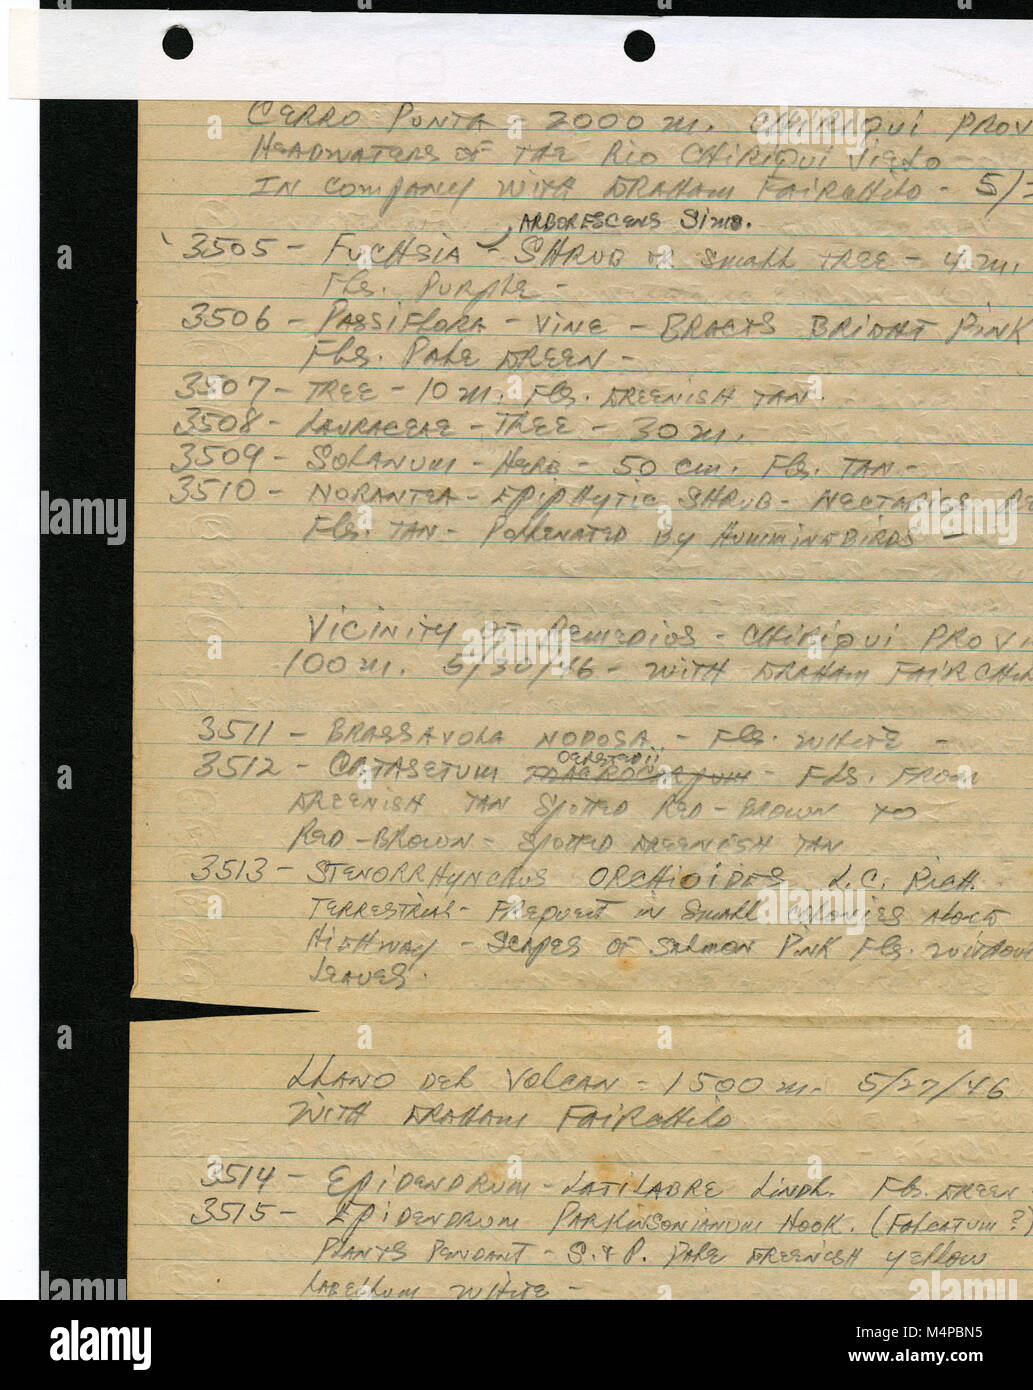 CERRO PUNTA - 2000 m. CHIRIQUI PROV
HEADWATERS OF THE RIO CHIRIQUI VIEJO -
IN COMPANY WITH GRAHAM FAIRCHILD - 5/2
ARBORESCENS SIMS.
3505 - FUCHSIA - SHRUB OR SMALL TREE - 4 m.
FLS. PURPLE -
3506 - PASSIFLORA - VINE - BRACTS BRIGHT PINK
FLS. PALE GREEN -
3507 - TREE - 10 m. FLS. GREENISH TAN.
3508 - LAURACEAE - TREE - 30 m.
3509 - SOLANUM - HERB - 50 cm. FLS. TAN -
3510 - NORANTEA - EPIPHYTIC SHRUB - NECTARIES RE
FLS. TAN - POLLENATED BY HUMMINGBIRDS -
VICINITY OF REMEDIOS - CHIRIQUI PROVI
100 m. 5/30/46 - WITH GRAHAM FAIRCHIL
3511 - BRASSAVOLA NODOSA - FLS. WHITE -
OERSTEDII
3512 - CATASETUM - FLS. FROM
GREENISH TAN SPOTTED RED-BROWN TO
RED-BROWN - SPOTTED GREENISH TAN
3513 - STENORRHYNCHUS ORCHIOIDES L.C. RICH.
TERRESTRIAL - FREQUENT IN SMALL COLONIES ALONG
HIGHWAY - SCAPES OF SALMON PINK FLS. WITHOUT
LEAVES.
LLANO DEL VOLCAN - 1500 m. 5/27/46
WITH GRAHAM FAIRCHILD
3514 - EPIDENDRUM - LATILABRE LINDL. FLS. GREEN
3515 - EPIDENDRUM PARKINSONIANUM HOOK. (FALCATUM?)
PLANTS PENDANT - S. & P. PALE GREENISH YELLOW
LABELLUM WHITE -
alamy
Image ID: M4PBN5
www.alamy.com